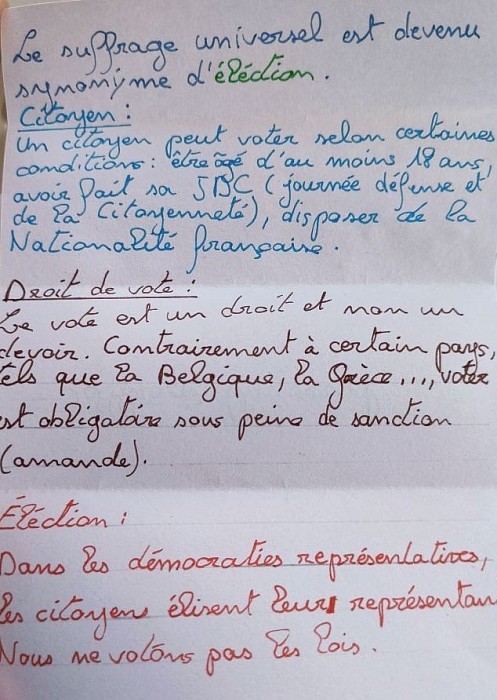 Le suffrage universel est devenu
synonyme d'éléction.
Citoyen :
Un citoyen peut voter selon certaines
conditions : être âgé d'au moins 18 ans,
avoir fait sa JDC (journée défense et
de la Citoyenneté), disposer de la
Nationalité française.
Droit de vote :
Le vote est un droit et non un
devoir. Contrairement à certain pays,
tels que la Belgique, la Grèce ..., voter
est obligatoire sous peine de sanction
(amande).
Éléction :
Dans les démocraties représentatives,
les citoyens élisent leurs représentan
Nous ne votons pas les lois.